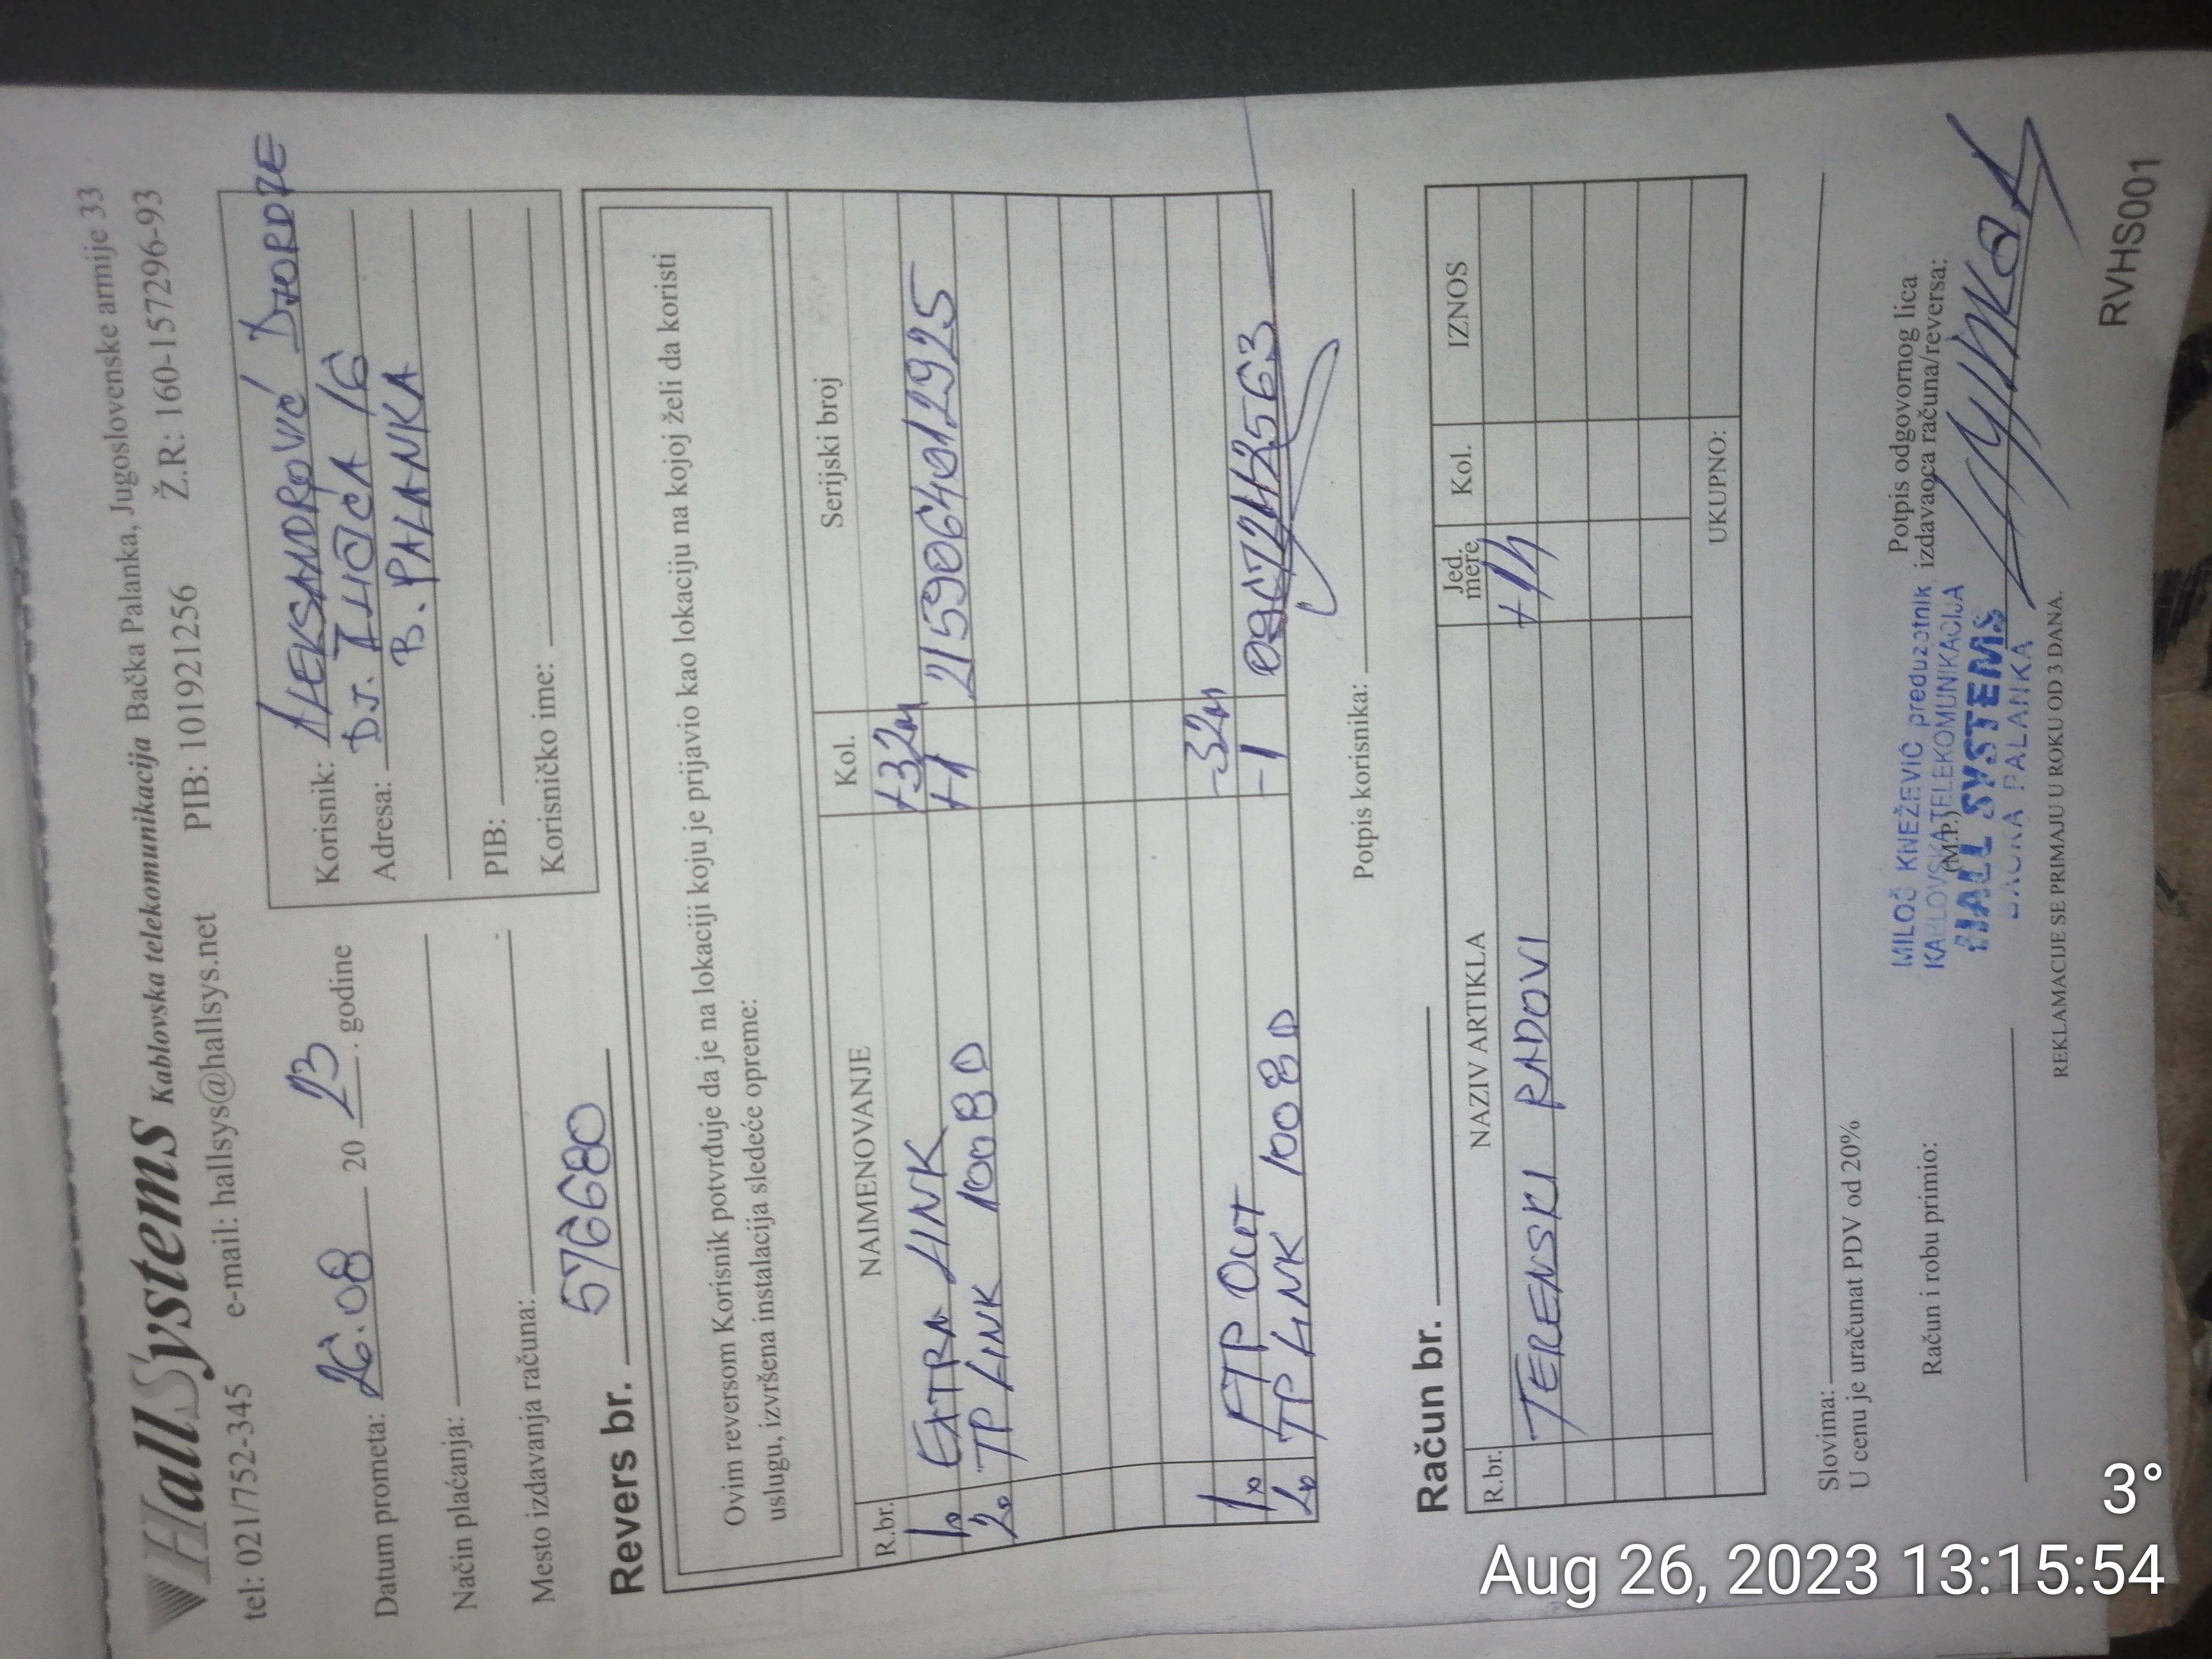 HallSystems Kablovska telekomunikacija Bačka Palanka, Jugoslovenske armije 33
tel: 021/752-345 e-mail: hallsys@hallsys.net PIB: 101921256 Ž.R: 160-157296-93
Datum prometa: 26.08 20 23. godine
Način plaćanja:
Mesto izdavanja računa:
Korisnik: ALEKSANDROVIĆ DJORDJE
Adresa: DJ. ILIĆA 16
B. PALANKA
PIB:
Korisničko ime:
Revers br. 576680
Ovim reversom Korisnik potvrđuje da je na lokaciji koju je prijavio kao lokaciju na kojoj želi da koristi
uslugu, izvršena instalacija sledeće opreme:
R.br. NAIMENOVANJE Kol. Serijski broj
1. EXTRA LINK +32m
2. TP LINK 1008D +1 2159064012925
1. FTP Out -32m
2. TP LINK 1008D -1
Potpis korisnika:
Račun br.
R.br. NAZIV ARTIKLA Jed. mere Kol. IZNOS
TERENSKI RADOVI +1h
UKUPNO:
Slovima:
U cenu je uračunat PDV od 20%
Račun i robu primio:
(M.P.)
MILOŠ KNEŽEVIĆ preduzetnik
KABLOVSKA TELEKOMUNIKACIJA
HALL SYSTEMS
BAČKA PALANKA
Potpis odgovornog lica
izdavaoca računa/reversa:
REKLAMACIJE SE PRIMAJU U ROKU OD 3 DANA.
RVHS001
3°
Aug 26, 2023 13:15:54